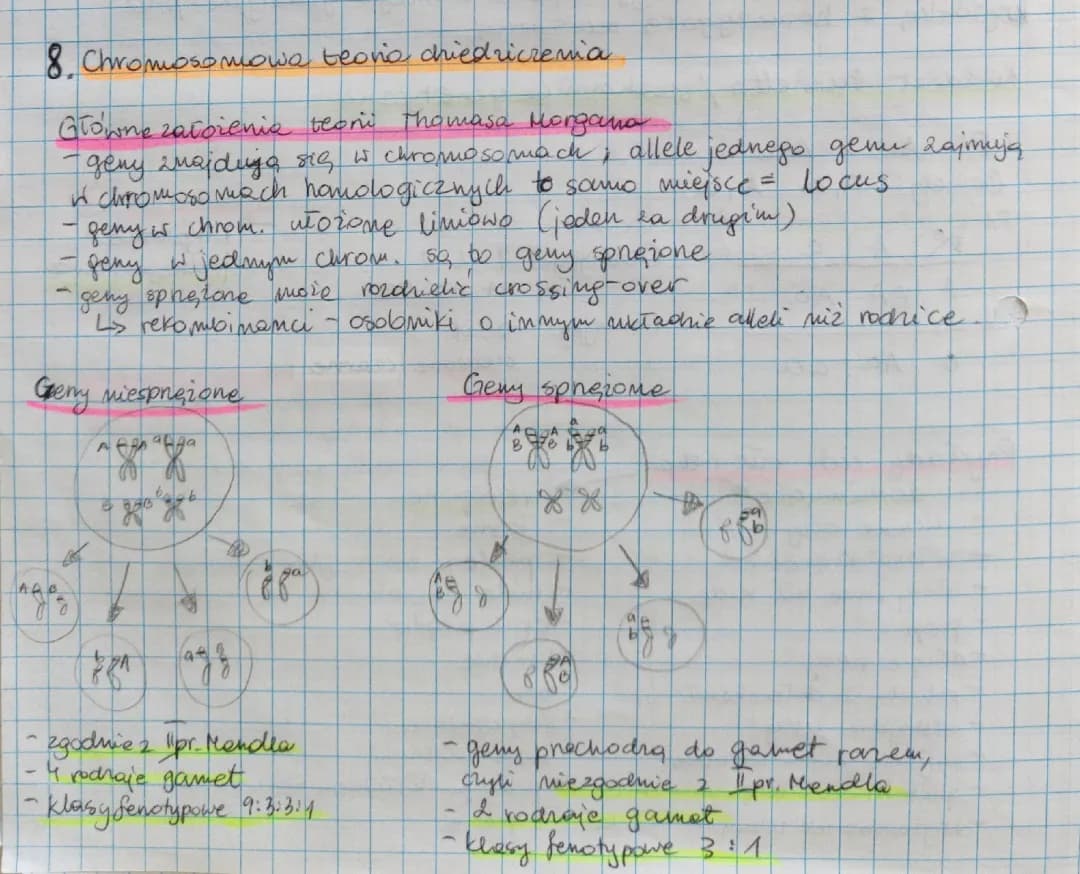 8. Chromosomowa teoria dziedziczenia
Główne założenia teorii Thomasa Morgana
- geny znajdują się w chromosomach, allele jednego genu zajmują
w chromosomach homologicznych to samo miejsce = locus
- geny w chrom. ułożone liniowo (jeden za drugim)
- geny w jednym chrom. są to geny sprzężone
- geny sprzężone może rozdzielić crossing-over
↳ rekombinanci - osobniki o innym układzie alleli niż rodzice.
Geny niesprzężone
Geny sprzężone
A A a a
B B b b
A A a a
B B b b
- zgodnie z II pr. Mendla
- 4 rodzaje gamet
- klasy fenotypowe 9:3:3:1
- geny przechodzą do gamet razem,
czyli niezgodnie z II pr. Mendla
- 2 rodzaje gamet
- klasy fenotypowe 3:1